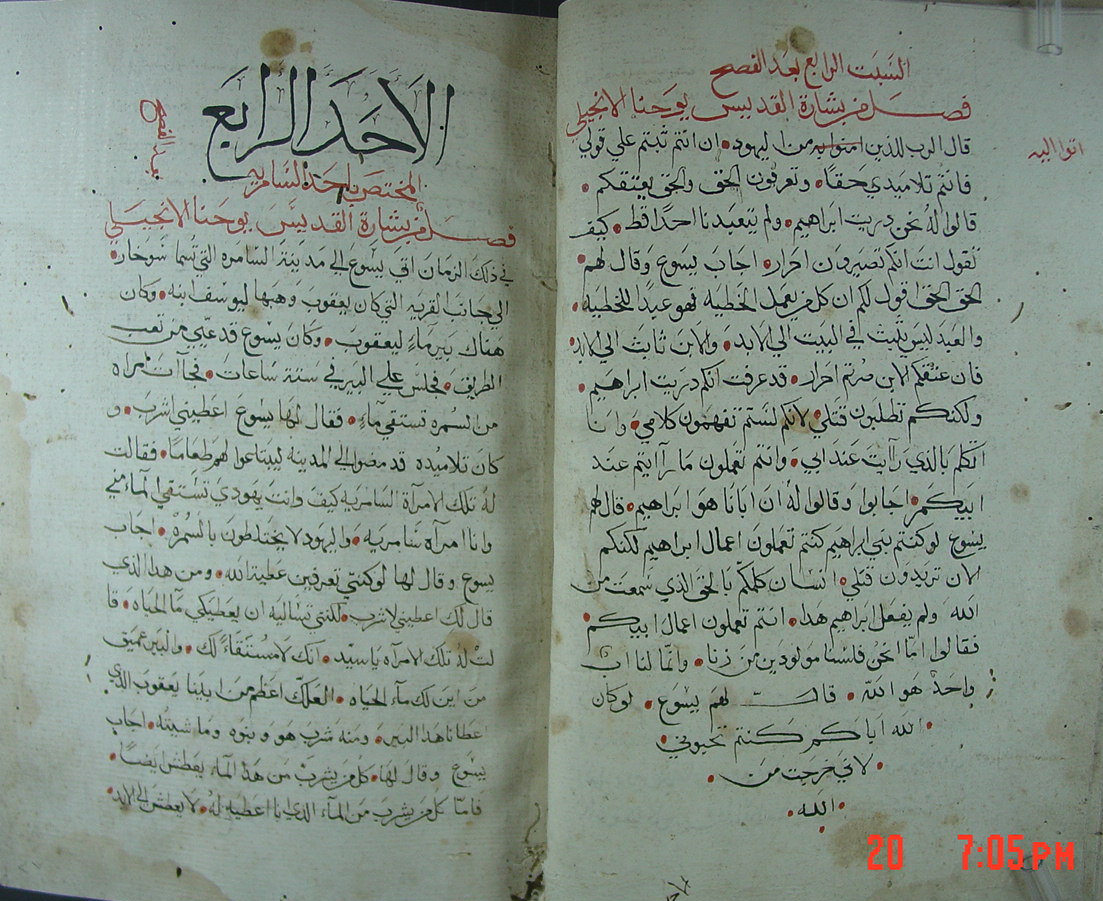 السبت الرابع بعد الفصح
فصل من بشارة القديس يوحنا الانجيلي
قال الرب للذين امنوا به من اليهود • ان انتم ثبتم علي قولي
اتوا اليه
فانتم تلاميدي حقا • وتعرفون الحق والحق يعتقكم •
قالوا له نحن دريت ابراهيم • ولم تتعبد لنا احدا قط • كيف
تقول انت انكم تصيرون احرار • اجاب يسوع وقال لهم •
الحق الحق اقول لكم ان كل من يعمل الخطيه فهو عبدا للخطيه •
والعبد ليس يلبث في البيت الي الابد • والابن ثابت الي الابد •
فان عتقكم الابن صرتم احرار • قد عرفت انكم دريت ابراهيم •
ولكنكم تطلبون قتلي • لانكم لستم تفهمون كلامي • وانا
اتكلم بالدي رايت عند ابي • وانتم تعملون ما رايتم عند
ابيكم • اجابوا وقالوا له ان ابانا هو ابراهيم • قال لهم
يسوع لو كنتم بني ابراهيم كنتم تعملون اعمال ابراهيم لكنكم
الان تريدون قتلي • انسان كلمكم بالحق الدي سمعت من
الله ولم يفعل ابراهيم هدا • انتم تعملون اعمال ابيكم •
فقالوا اما نحن فلسنا مولودين من زنا • وانما لنا اب
واحد هو الله • قال لهم يسوع • لو كان
• الله اباكم كنتم تحبوني •
• لاني خرجت من •
• الله •
الاحد الرابع
بعد الفصح
المختص باحد السامريه
فصل من بشارة القديس يوحنا الانجيلي
في ذلك الزمان اتي يسوع الي مدينة السامره التي تسما سوخار •
الي جانب القريه التي كان يعقوب وهبها ليوسف ابنه • وكان
هناك بير ماء ليعقوب • وكان يسوع قد عني من تعب
الطريق • فجلس علي البير في ستة ساعات • فجاات امراه
من السمره تستقي ماء • فقال لها يسوع اعطيني اشرب • و
كان تلاميده قد مضوا الي المدينه ليبتاعوا لهم طعاما • فقالت
له تلك الامرآة السامريه كيف وانت يهودي تستقي الماء مني
وانا امرآه سامريه • واليهود لا يختلطون بالسمره • اجاب
يسوع وقال لها لو كنتي تعرفين عطية الله • ومن هدا الدي
قال لك اعطيني لاشرب • لكنتي تساليه ان يعطيكي ما الحياه • قا
لت له تلك الامراه يا سيد • انك لا مستقاء لك • والبير عميق
من اين لك ماء الحياه • العلك اعظم من ابينا يعقوب الدي
اعطانا هدا البير • ومنه شرب هو وبنوه وماشيته • اجاب
يسوع وقال لها • كل من يشرب من هدا الماء يعطش ايضا •
فاما كل من يشرب من الماء الدي انا اعطيه له • لا يعطش الي الابد •
20 7:05 PM